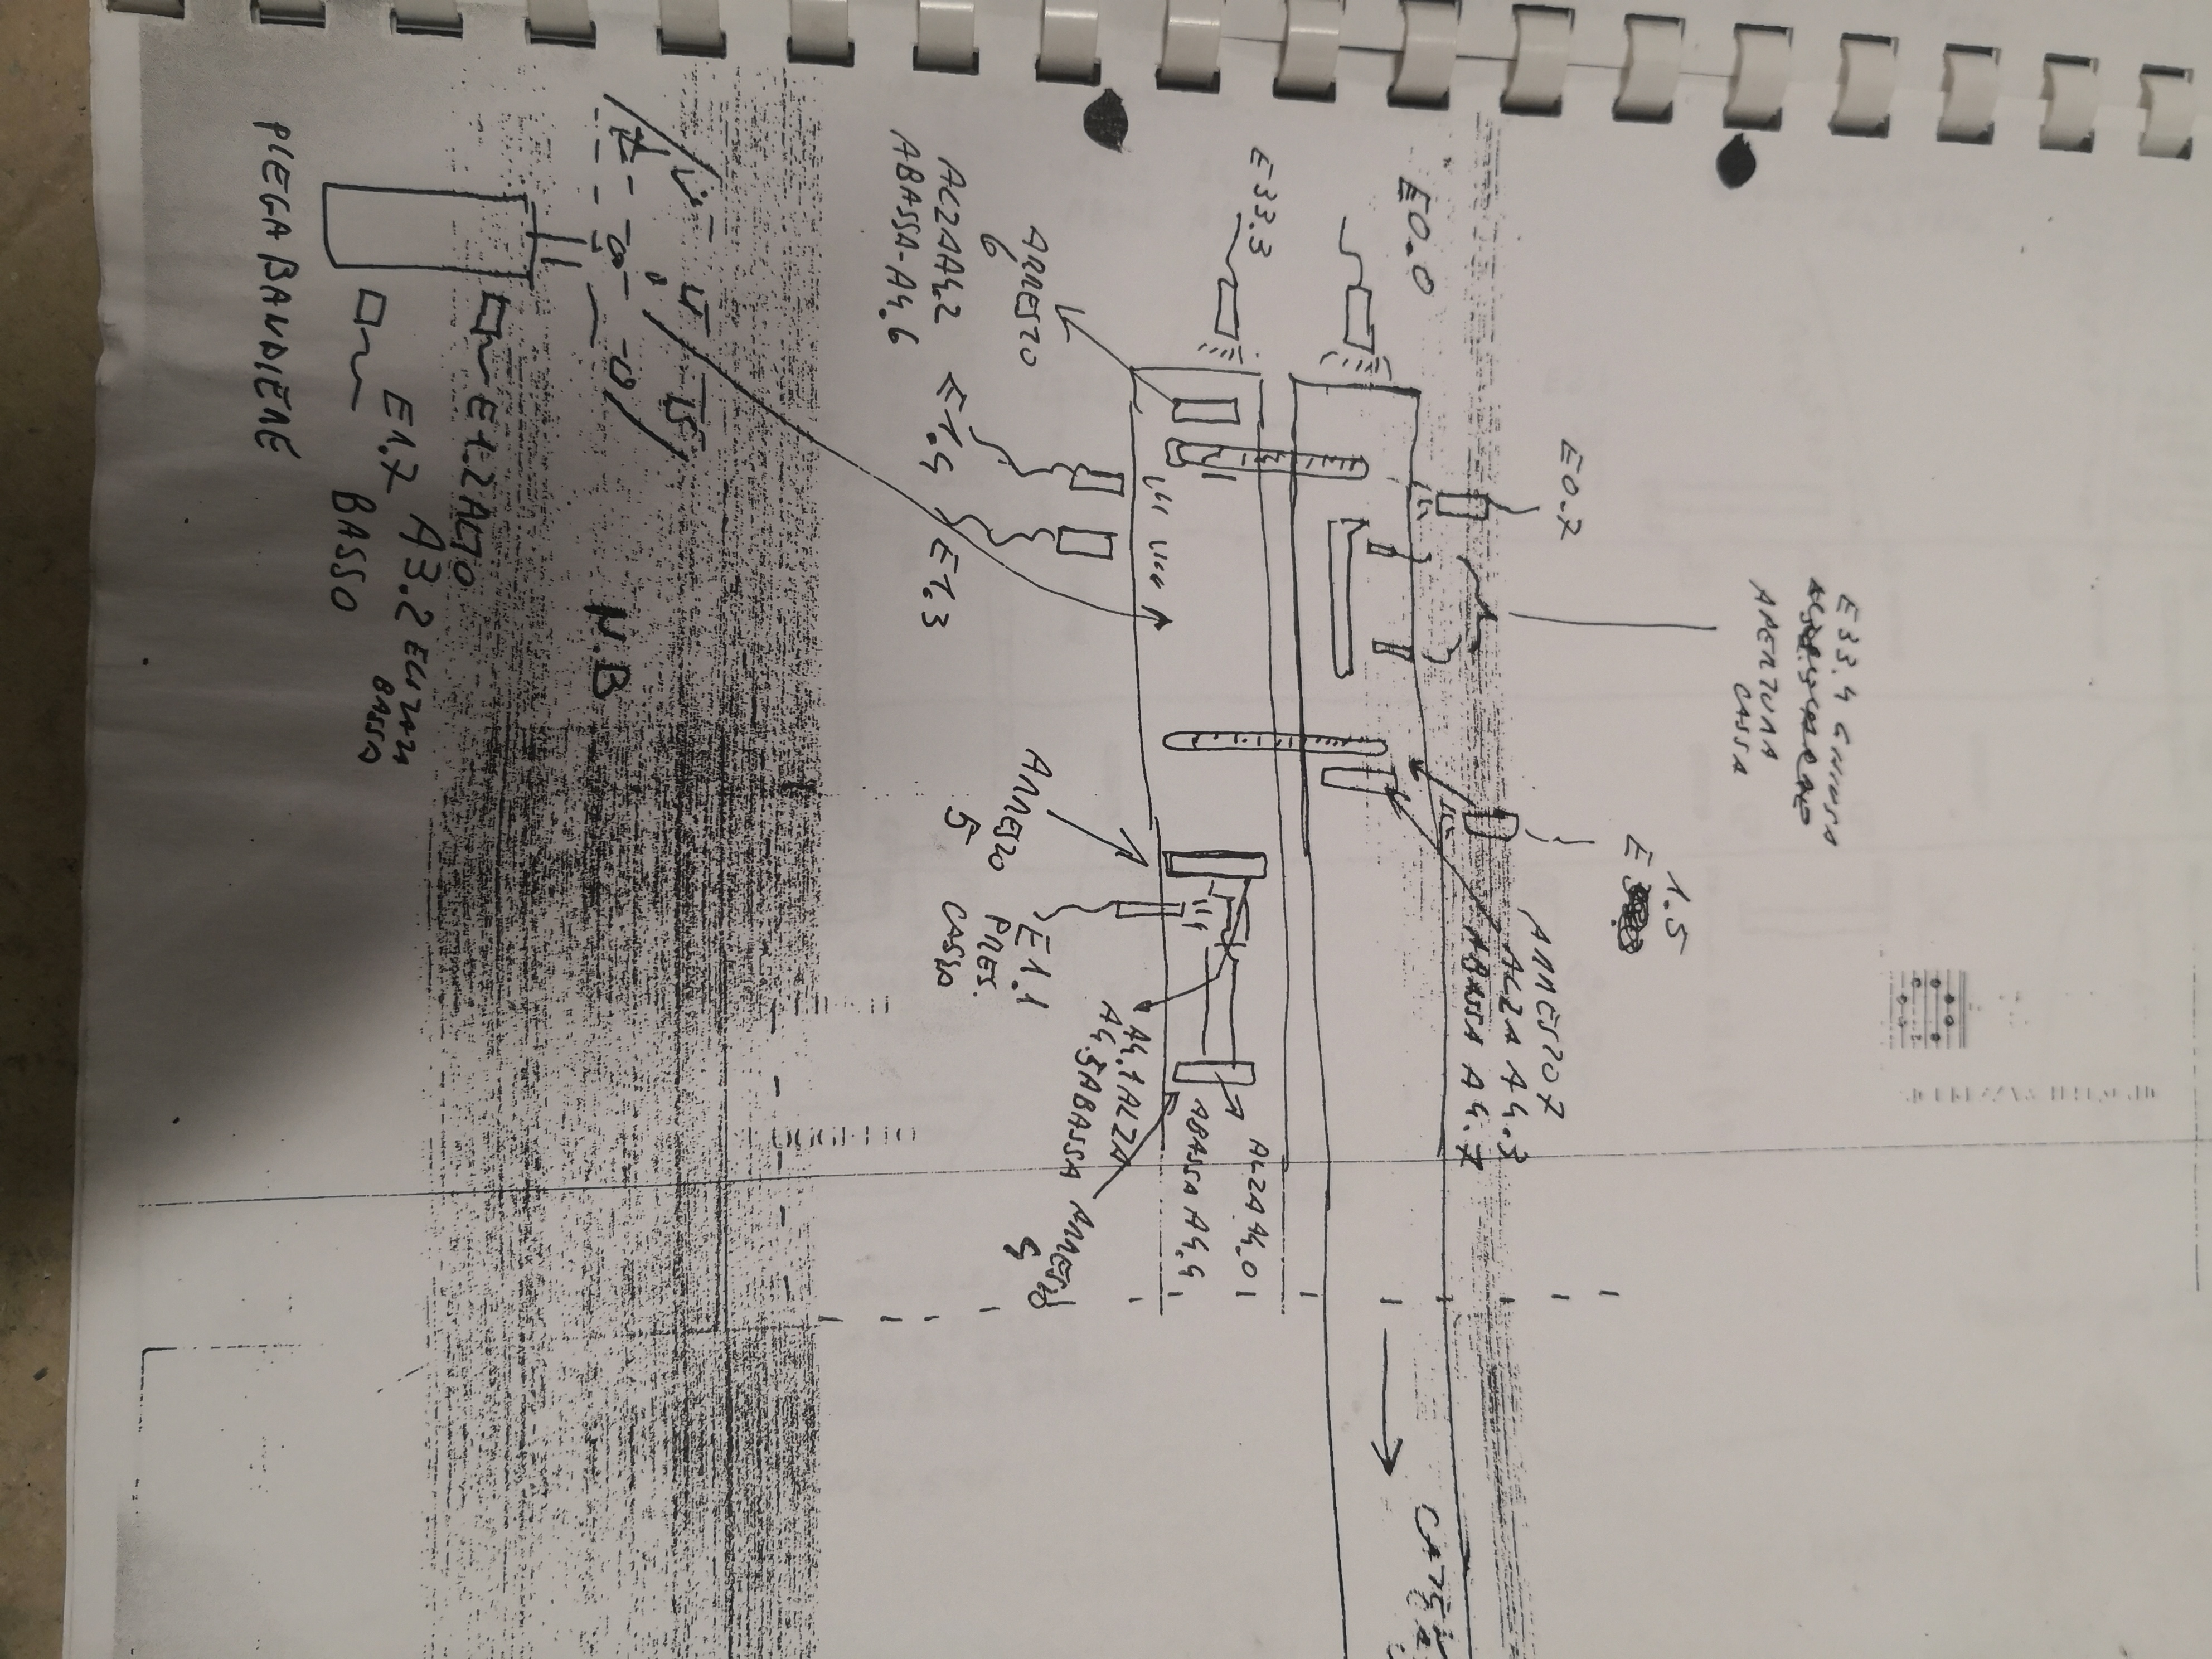 E33.4 CHIUSA
APERTURA
CASSA
E0.7
1.5
E
E0.0
ARRESTO 7
ALZA A4.3
ABASSA A4.7
E33.3
ALZA A4.0
ABASSA A4.4
ARRESTO
6
ALZA A4.2
ABASSA-A4.6
E1.4
E1.3
ARRESTO
5
E1.1
PRES.
CASSA
A4.1 ALZA
A4.5 ABASSA
ARRESTO
4
N.B
E1.2 ALTO
E1.7
BASSO
A3.2
BASSA
PIEGA BANDIERE